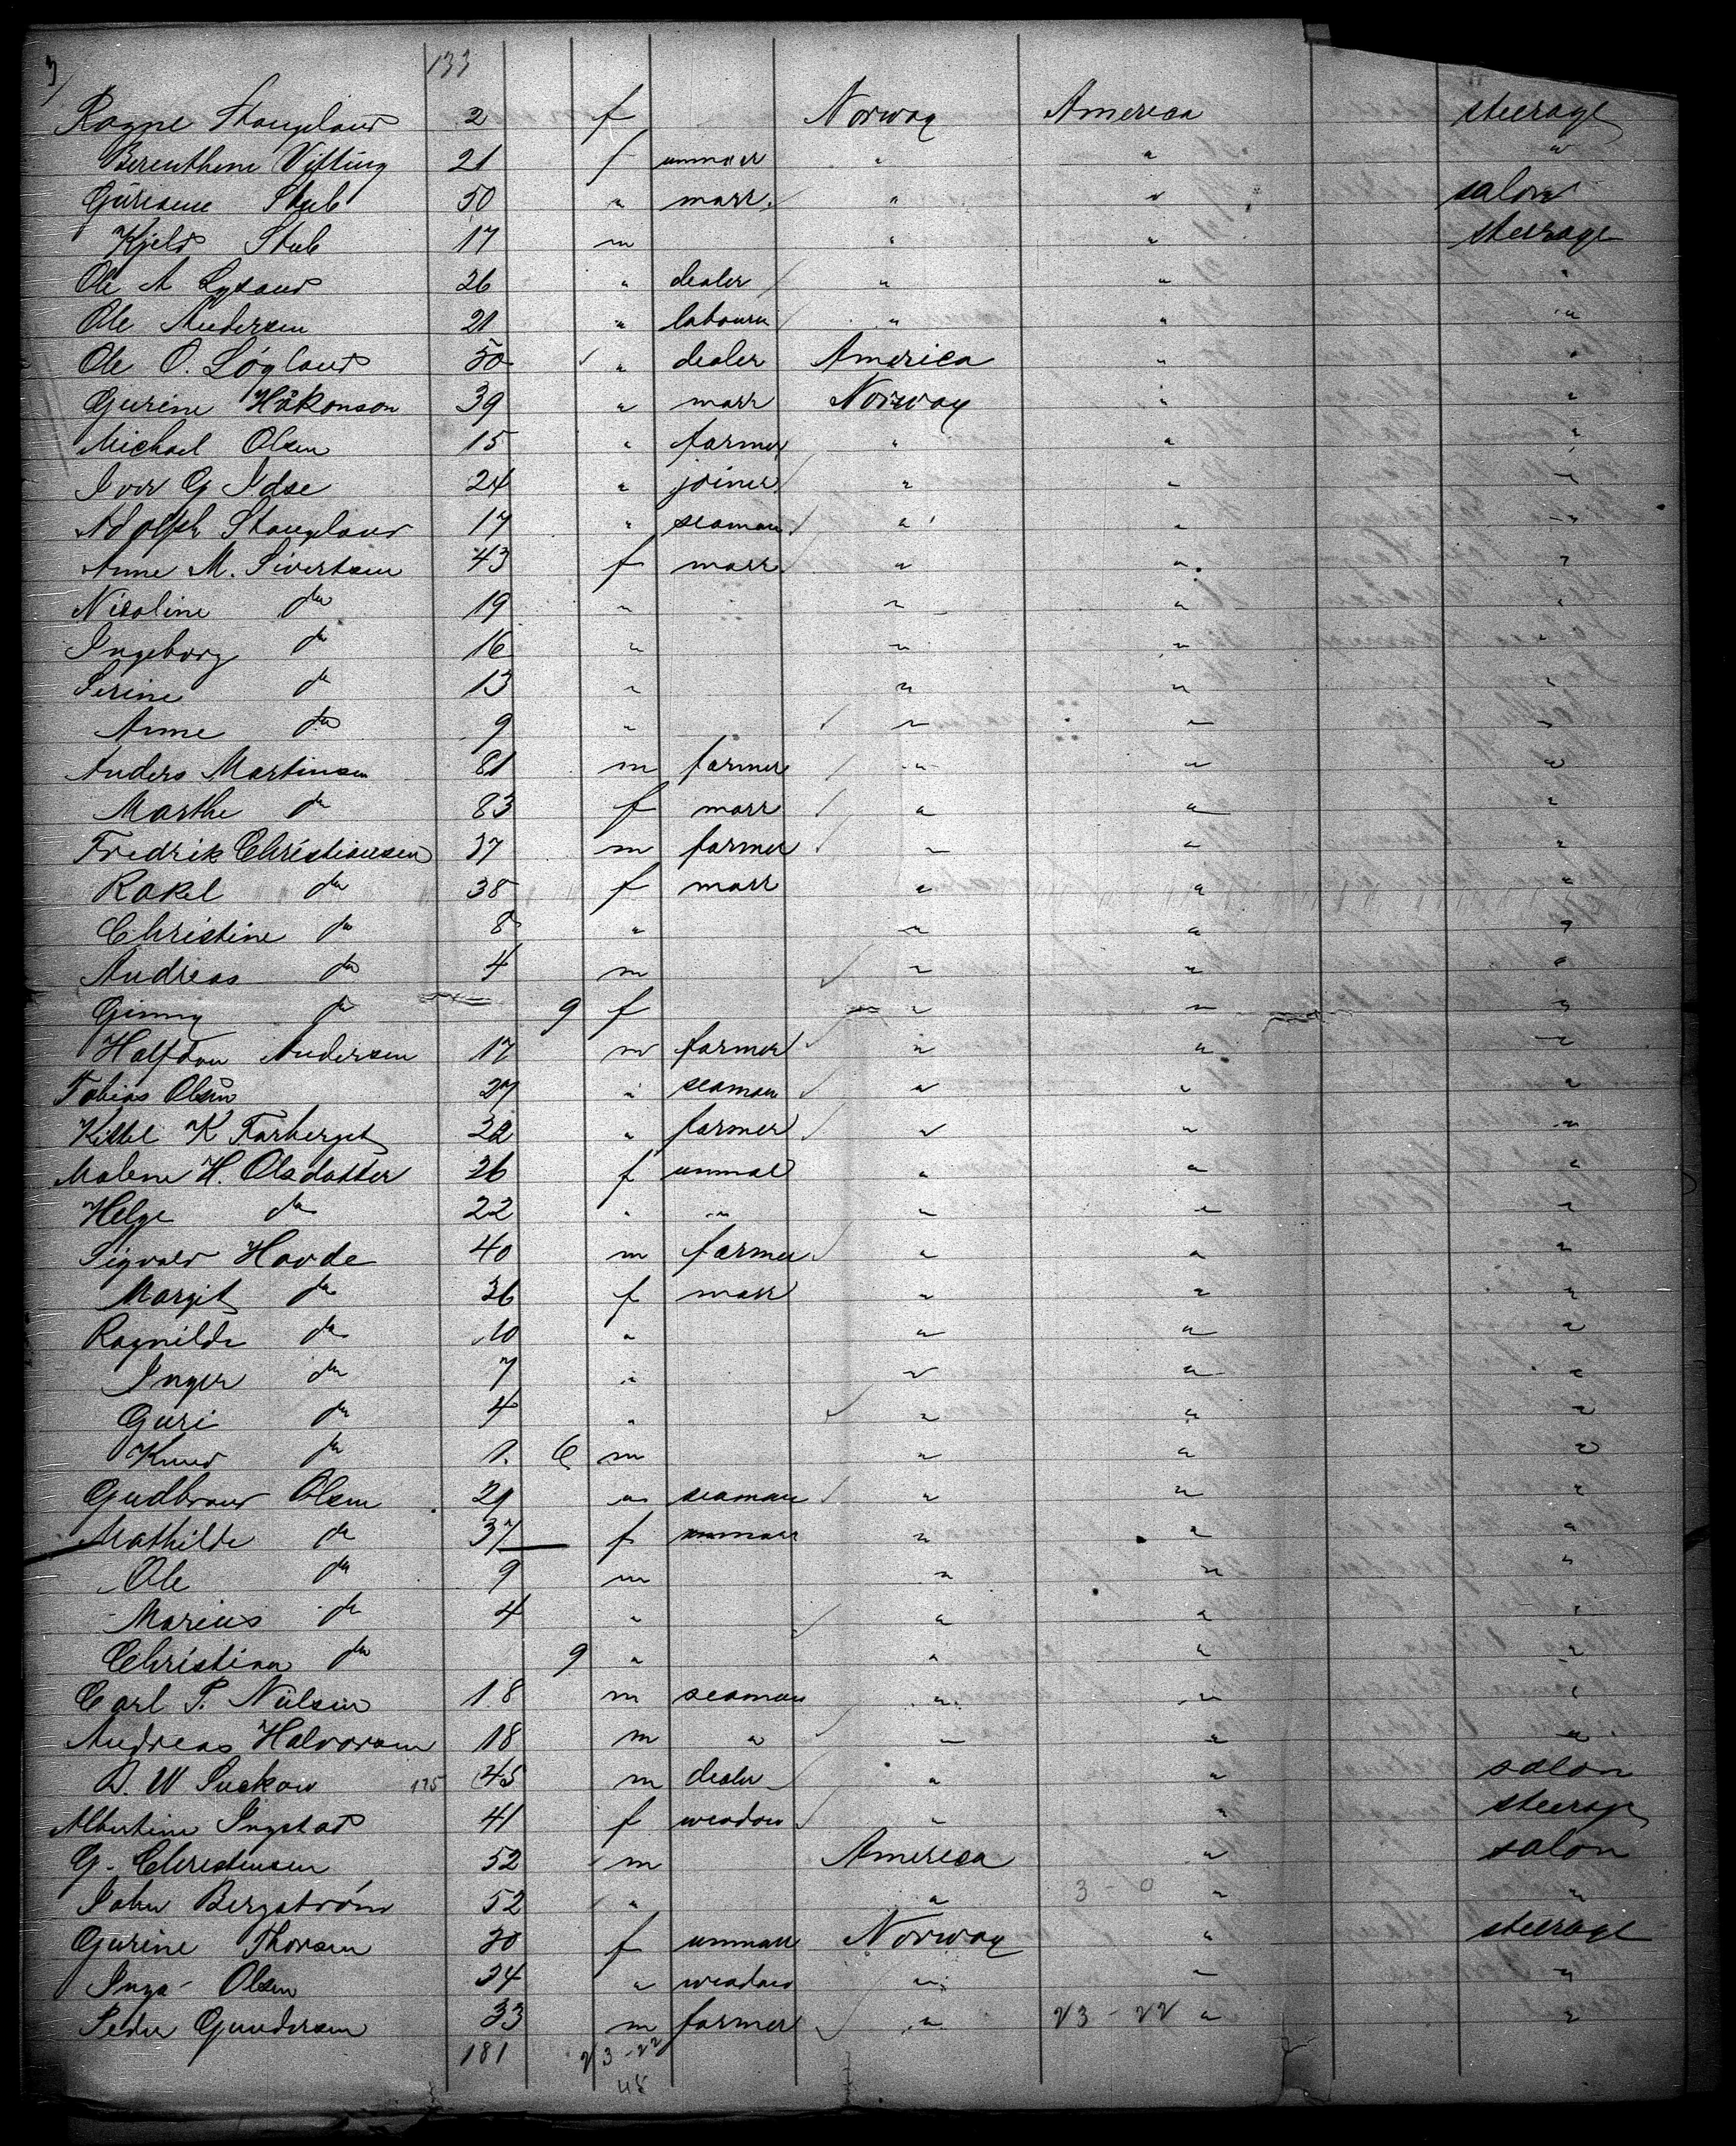 3/ 133
Ragne Stangeland 2 f Norway America steerage
Berenthine Vitting 21 f unmarr " " "
Guriane Stub 50 " marr. " " salon
Kjeld Stub 17 m " " steerage
Ole A Lysand 26 " dealer " " "
Ole Andersen 21 " labourer " " "
Ole O. Løgland 50 " dealer America " "
Gurine Håkonson 39 " marr Norway " "
Michael Olsen 15 " farmer " " "
Iver G Idse 24 " joiner " " "
Adolph Stangeland 17 " seaman " " "
Anne M. Sivertsen 43 f marr. " " "
Nicoline do 19 " " " "
Ingeborg do 16 " " " "
Serine do 13 " " " "
Anne do 9 " " " "
Anders Martinsen 81 m farmer " " "
Marthe do 83 f marr " " "
Fredrik Christiansen 37 m farmer " " "
Rakel do 38 f marr " " "
Christine do 8 " " " "
Andreas do 4 m " " "
Ginny do 9 f " " "
Halfdan Andersen 17 m farmer " " "
Tobias Olsen 27 " seaman " " "
Kittel K Farberget 32 " farmer " " "
Malene H. Olsdatter 26 f unmar " " "
Helge do 22 " " " " "
Sigvald Hovde 40 m farmer " " "
Margit do 36 f marr " " "
Ragnilde do 10 " " " "
Inger do 7 " " " "
Guri do 4 " " " "
Knud do 1. 6 m " " "
Gudbrand Olsen 29 " seaman " " "
Mathilde do 37 f unmarr " " "
Ole do 9 m " " "
Marius do 4 " " " "
Christian do 9 " " " "
Carl P. Nielsen 18 m seaman " " "
Andreas Halvorsen 18 m " " " "
D. W Suckow 175 45 m dealer " " salon
Albertine Ingstad 41 f weadow " " steerage
G. Christensen 52 m America " salon
John Bergström 52 " " 3-0 " "
Gurine Thorsen 30 f unmarr Norway " steerage
Inga Olsen 34 " weadow " " "
Peder Gundersen 33 m farmer " 23-22 " "
181 23-22
48